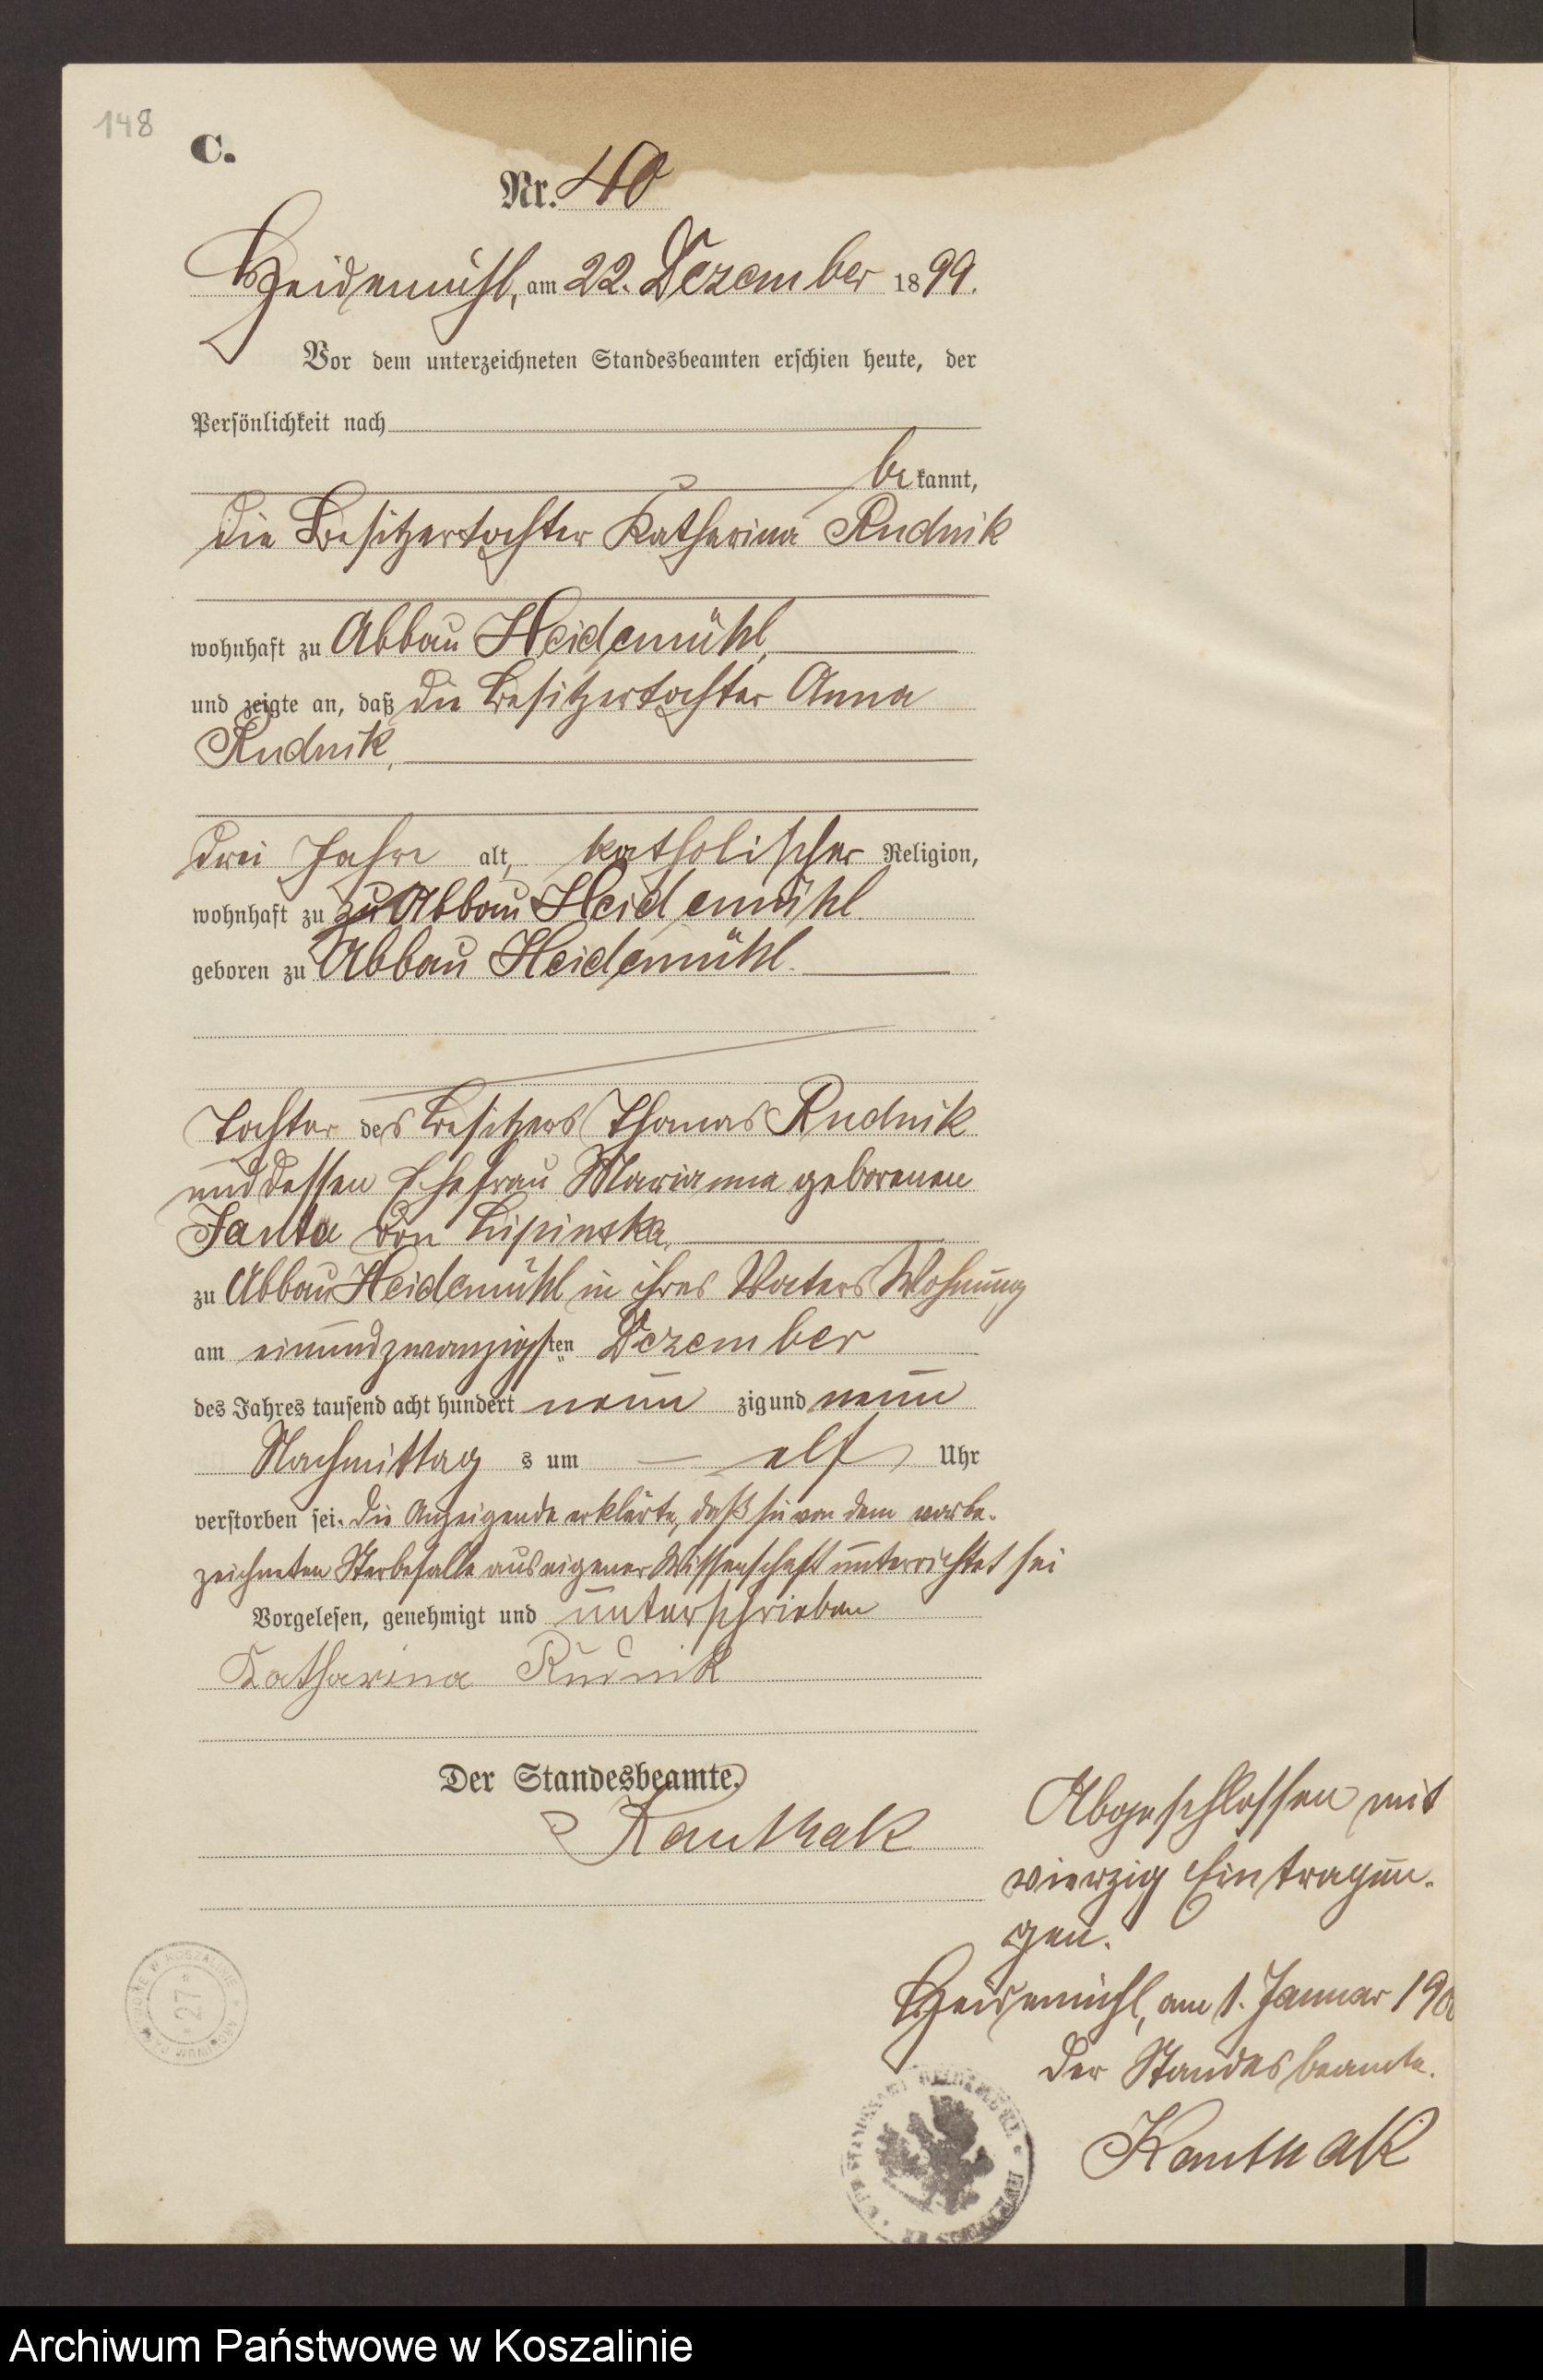 148
C.
Nr. 40
Heidemühl, am 22. Dezember 1899.
Vor dem unterzeichneten Standesbeamten erschien heute, der
Persönlichkeit nach
bekannt,
die Besitzertochter Katharina Rudnik
wohnhaft zu Abbau Heidemühl,
und zeigte an, daß die Besitzertochter Anna
Rudnik,
drei Jahre alt, katholischer Religion,
wohnhaft zu zu Abbau Heidemühl
geboren zu Abbau Heidemühl.
Tochter des Besitzers Thomas Rudnik
und dessen Ehefrau Marianna geborenen
Janta von Lipinska,
zu Abbau Heidemühl in ihres Vaters Wohnung
am einundzwanzigsten Dezember
des Jahres tausend acht hundert neun zig und neun
Nachmittag s um elf Uhr
verstorben sei. Die Anzeigende erklärte, daß sie von dem vorbe-
zeichneten Sterbefalle aus eigener Wissenschaft unterrichtet sei
Vorgelesen, genehmigt und unterschrieben
Katharina Rudnik
Der Standesbeamte.
Kanthak
Abgeschlossen mit
vierzig Eintragun-
gen.
Heidemühl, am 1. Januar 1900
Der Standesbeamte.
Kanthak
W KOSZALINIE
27
STANDESAMT HEIDEMÜHL
Archiwum Państwowe w Koszalinie